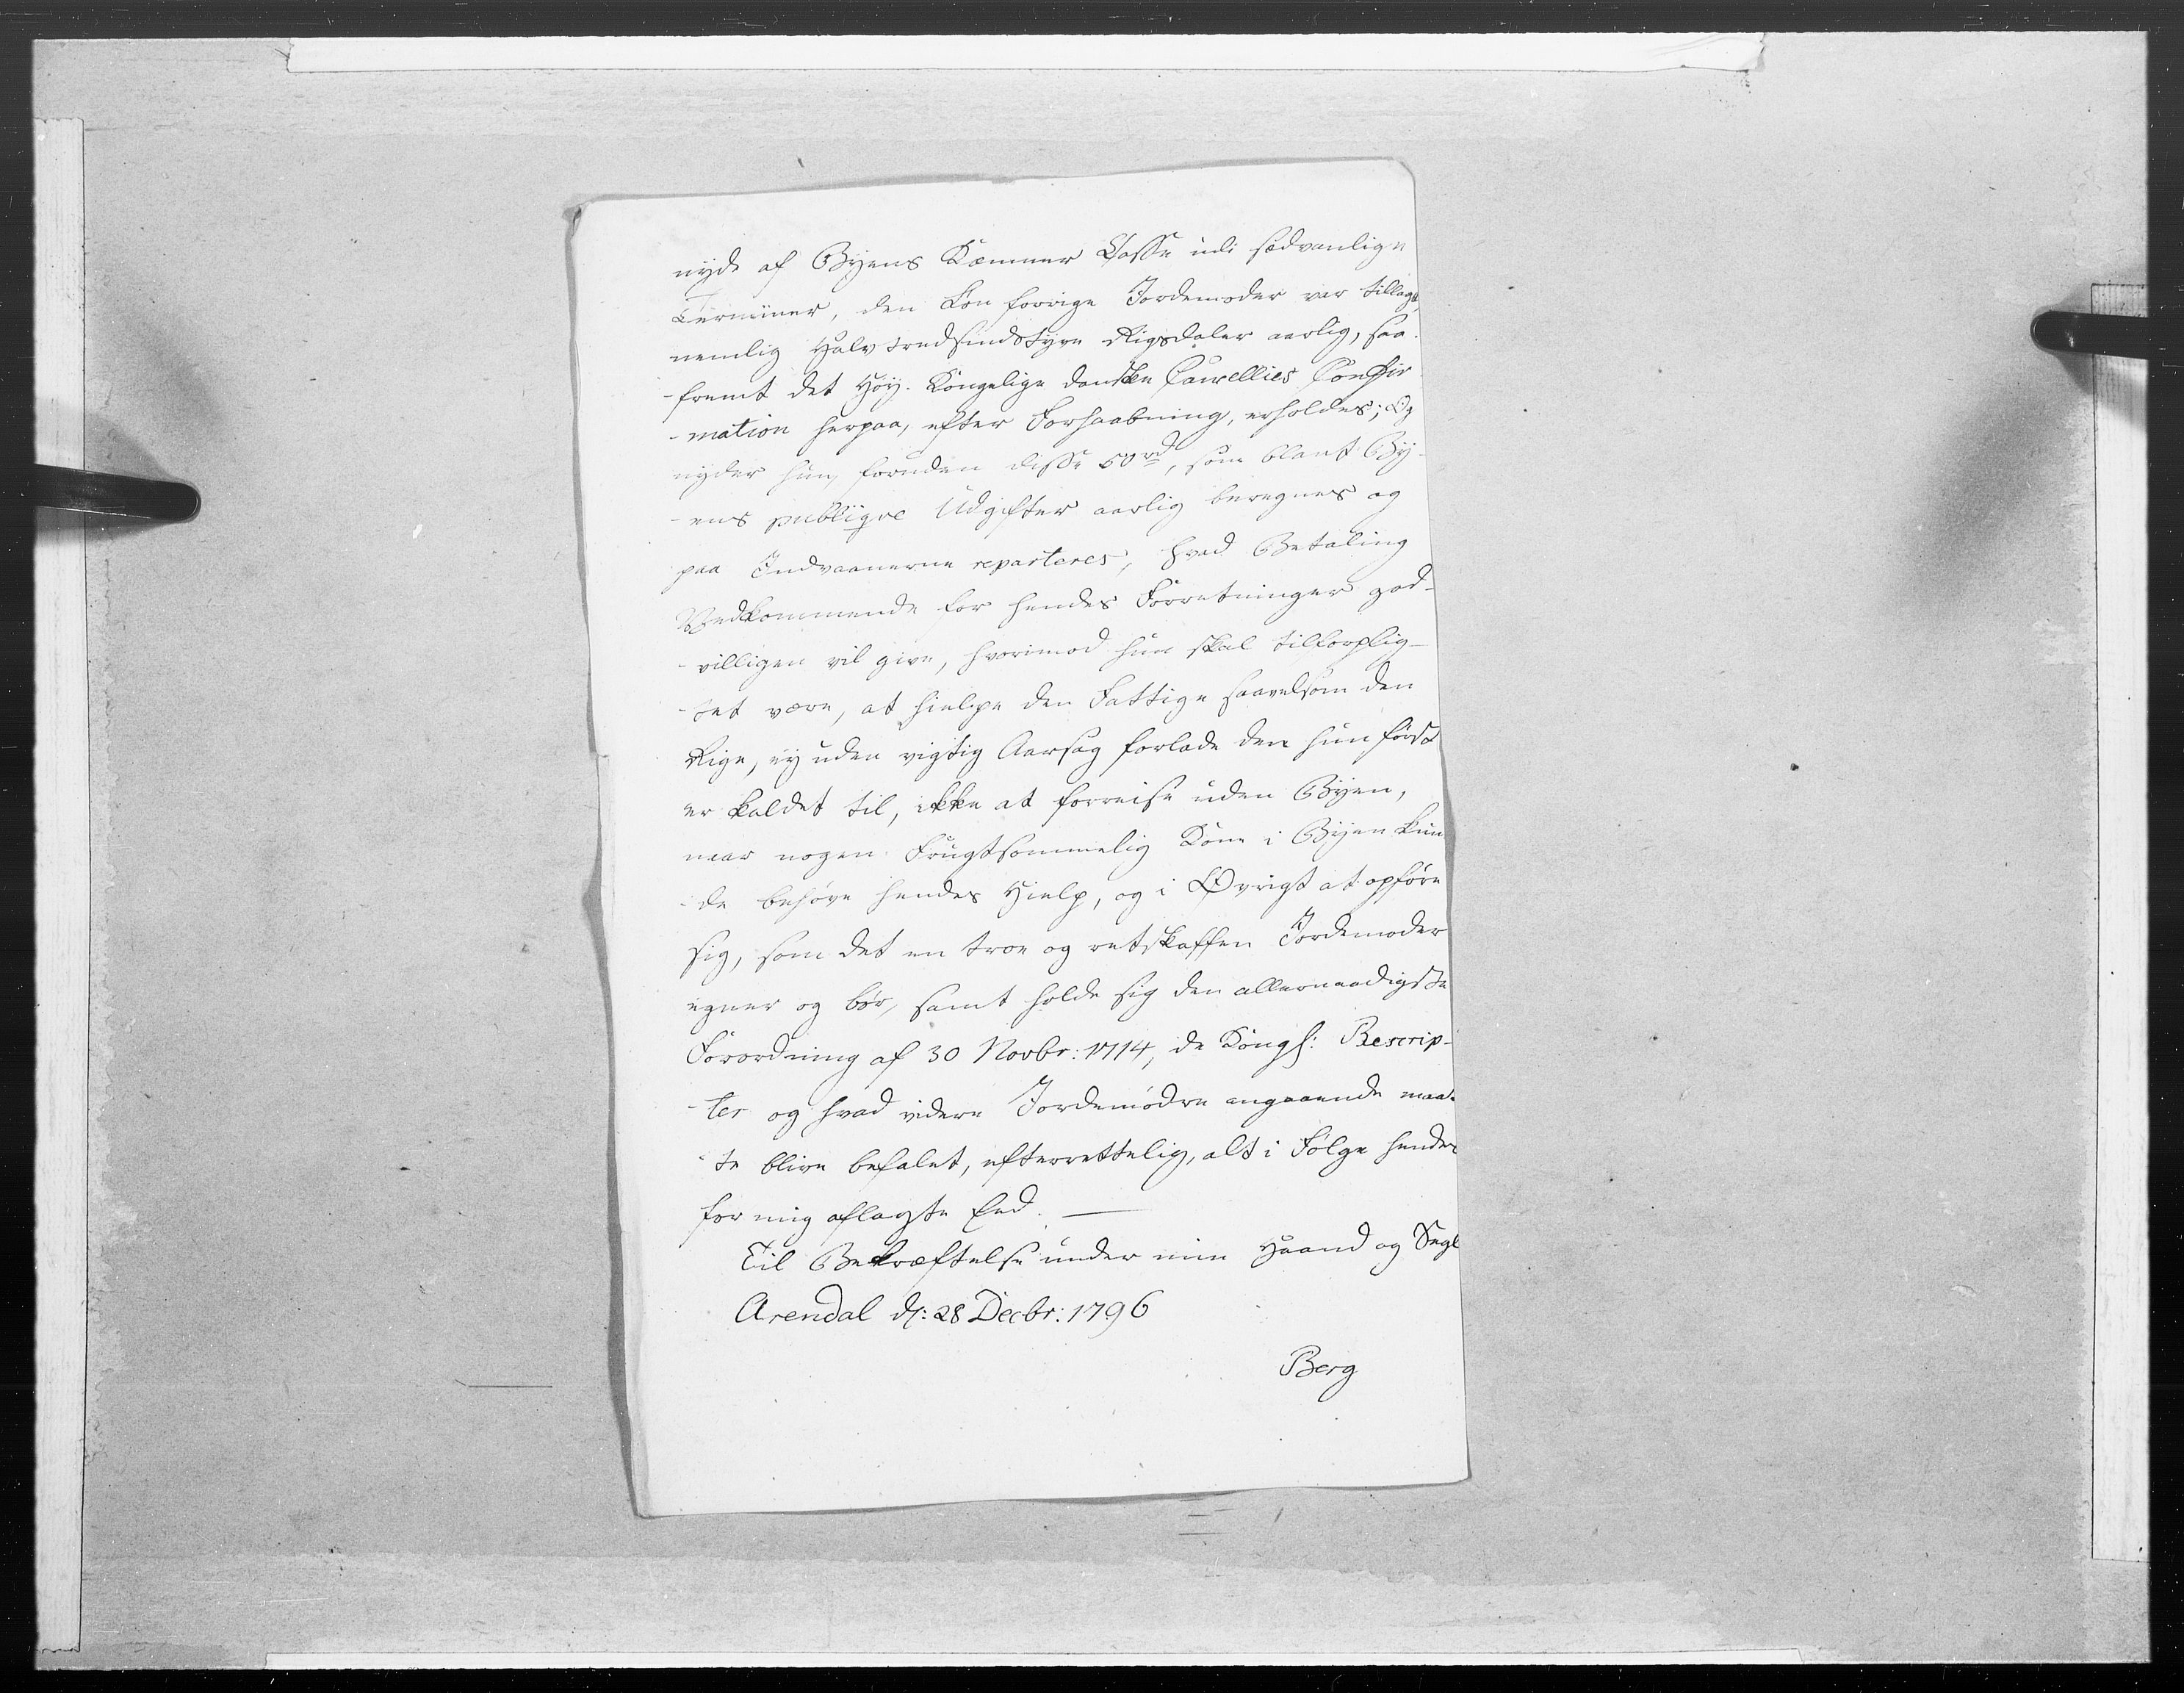 nyde af Byens Kæmner Casse udi sædvanlige
Terminer, den Løn forrige Jordemoder var tillagt,
nemlig Halvtredsindstyve Rigsdaler aarlig, saa-
-fremt det Høy-Kongelige danske Cancellies Confir-
-mation herpaa, efter Forhaabning, erholdes; Og
nyder hun, foruden disse 50 rd, som blant By-
-ens publiqve Udgifter aarlig beregnes og
paa Indvaanerne reparteres, hvad Betaling
Vedkommende for hendes Forretninger god-
-villigen vil give, hvorimod hun skal tilforplig-
-tet være, at hielpe den Fattige saavelsom den
Rige, ey uden vigtig Aarsag forlade den hun først
er kaldet til, ikke at forreise uden Byen,
naar nogen Frugtsommelig Kone i Byen kun-
-de behøve hendes Hielp, og i Øvrigt at opføre
sig, som det en troe og retskaffen Jordemoder
egner og bør, samt holde sig den allernaadigste
Forordning af 30 Novbr: 1714, de Kongl: Rescrip-
-ter og hvad videre Jordemødre angaaende maa-
-te blive befalet, efterrettelig, alt i Følge hendes
for mig aflagte Eed. —
Til Bekræftelse under min Haand og Segl
Arendal d: 28 Decbr: 1796
Berg